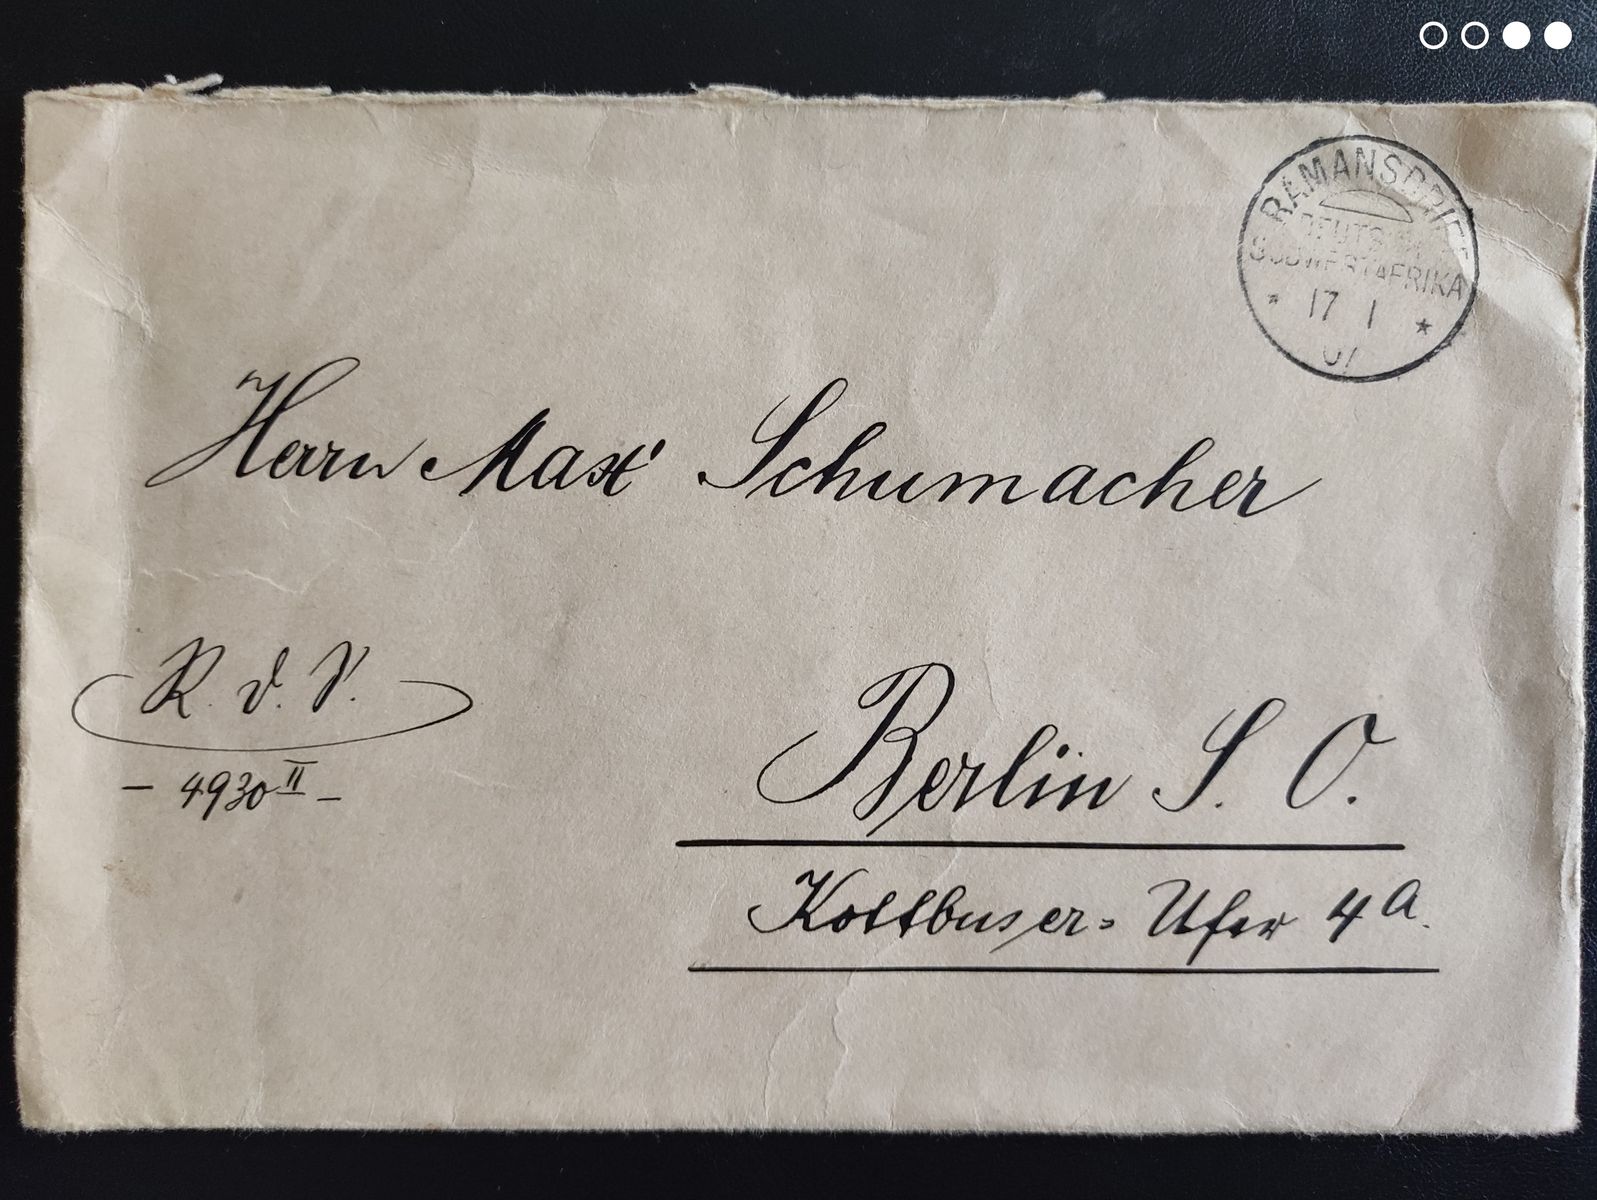 RAMANSDRIFT
DEUTSCH
SÜDWESTAFRIKA
* 17 1 *
07
Herrn Max Schumacher
R. d. V.
- 4930 II -
Berlin S. O.
Kottbuser= Ufer 4a.